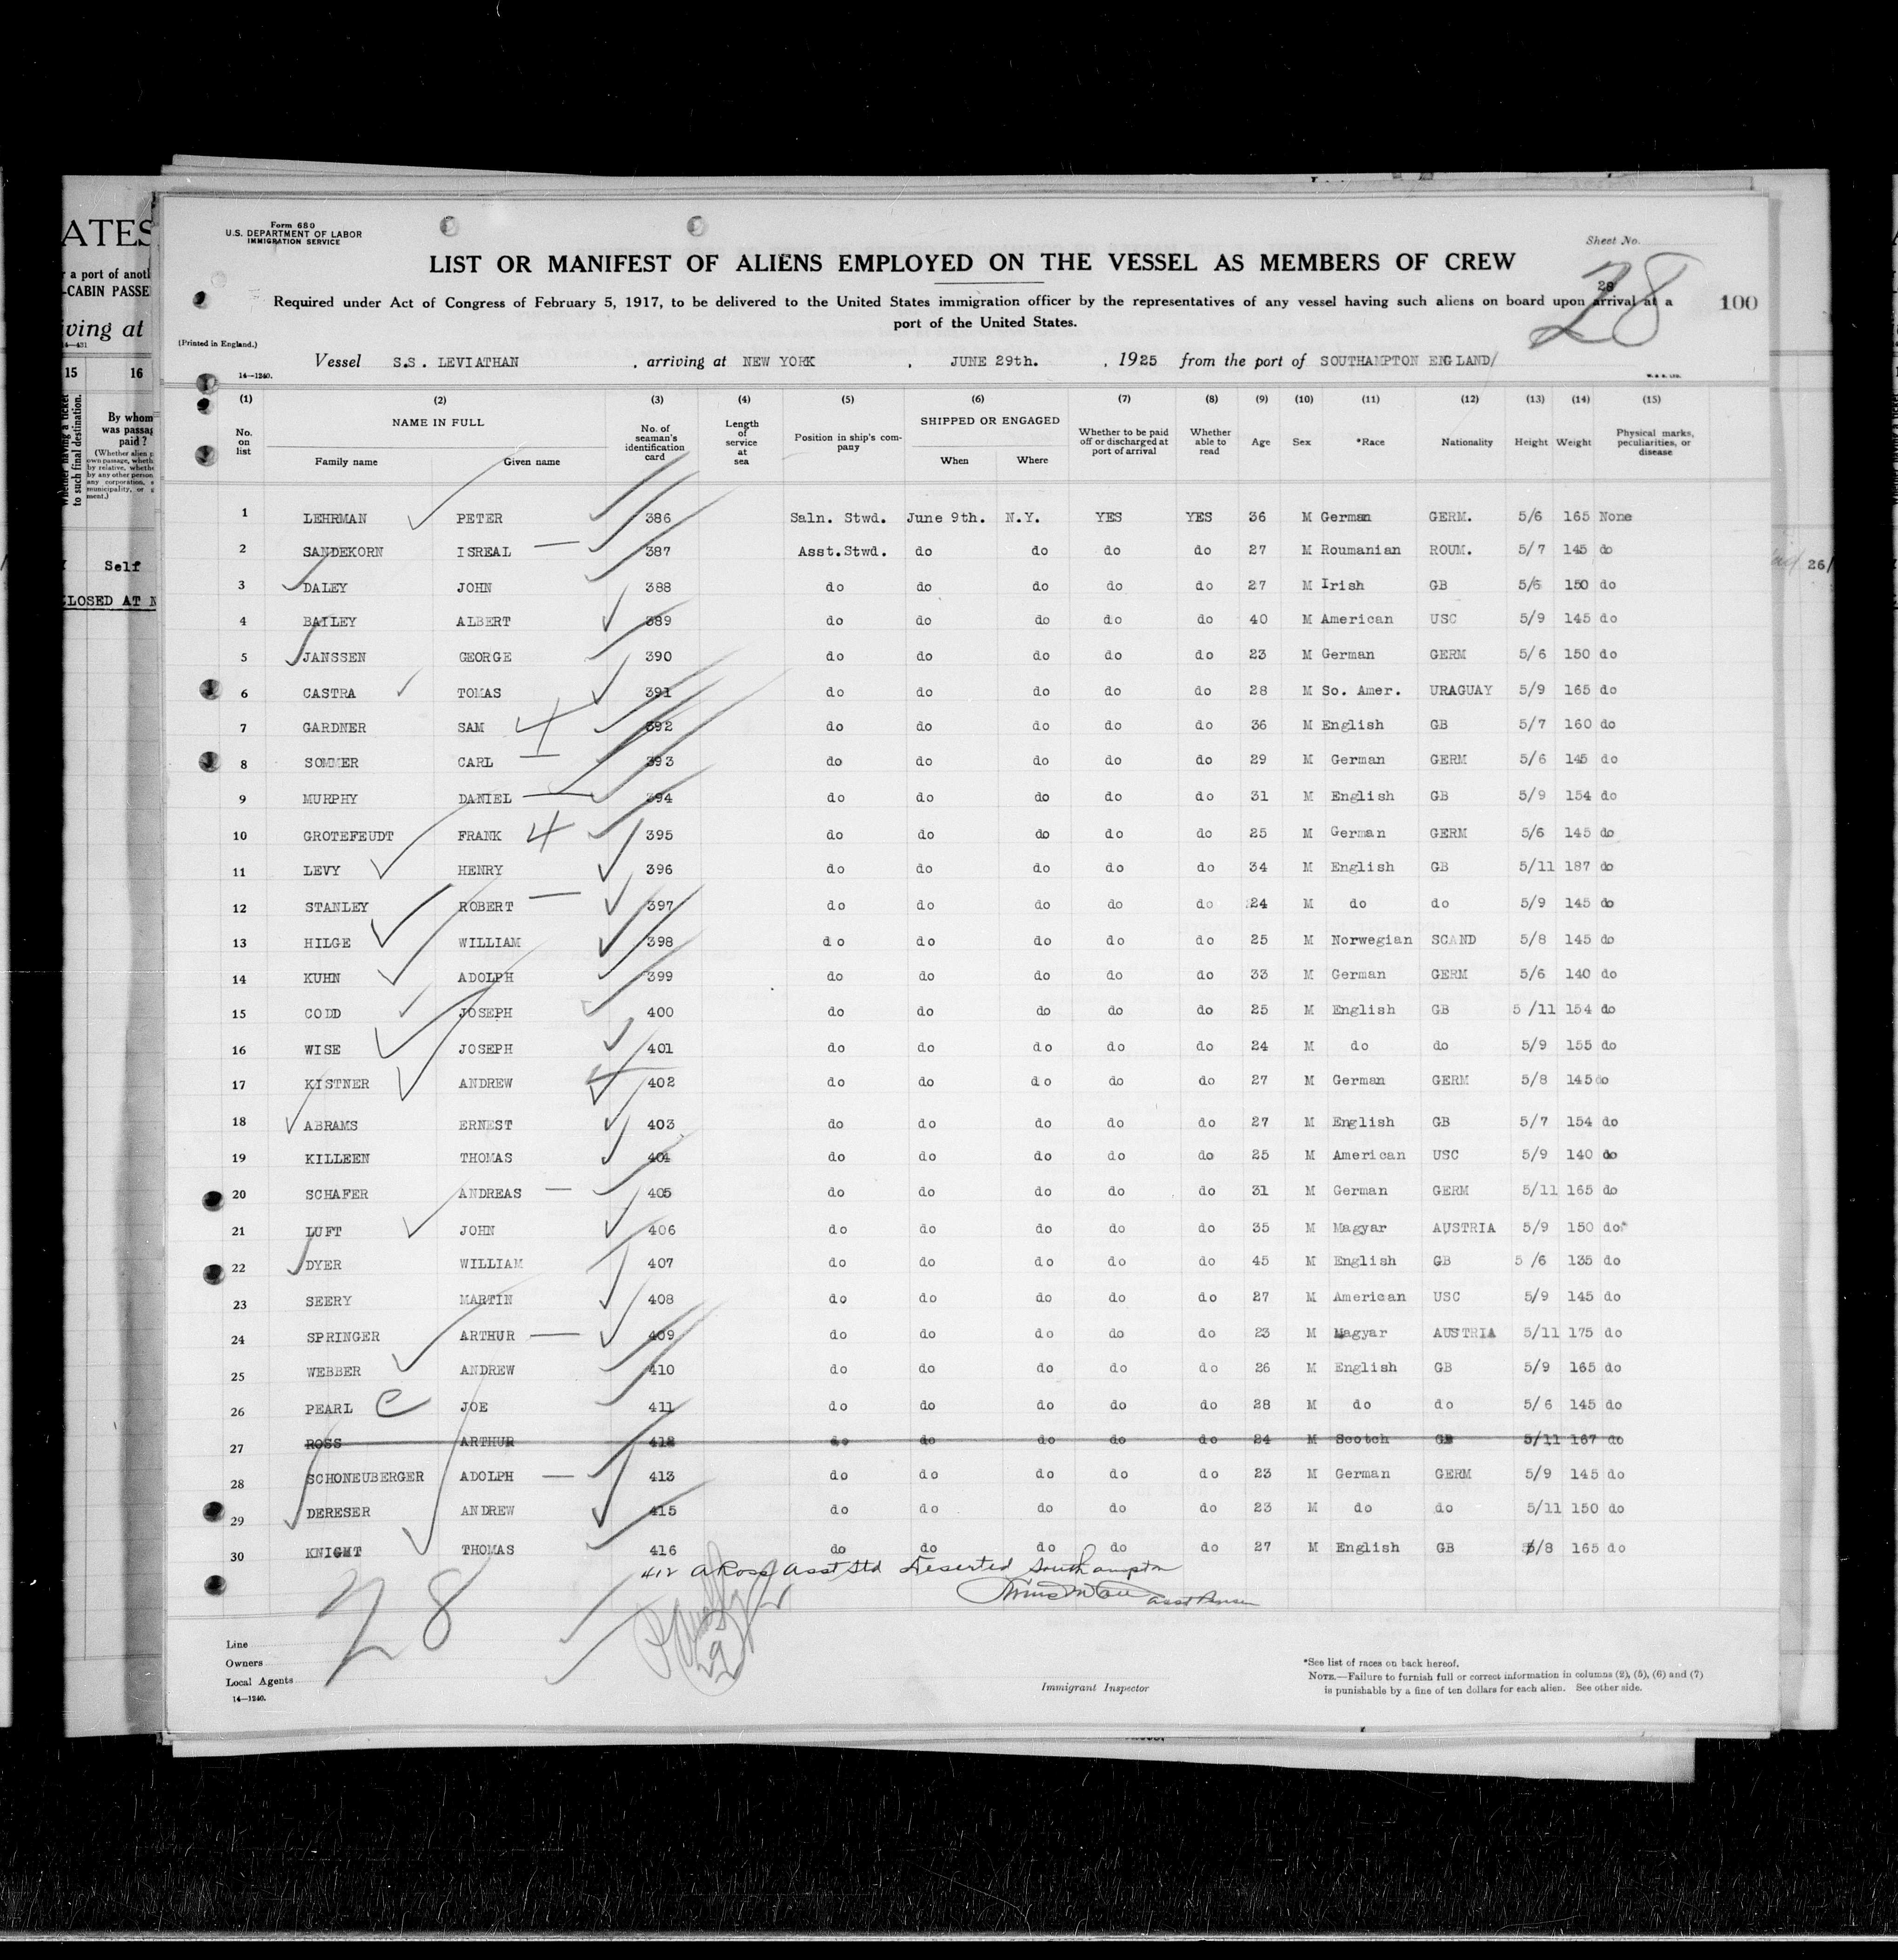 Form 680
U.S. DEPARTMENT OF LABOR
IMMIGRATION SERVICE
Sheet No.
LIST OR MANIFEST OF ALIENS EMPLOYED ON THE VESSEL AS MEMBERS OF CREW
28
28
Required under Act of Congress of February 5, 1917, to be delivered to the United States immigration officer by the representatives of any vessel having such aliens on board upon arrival at a
port of the United States.
100
(Printed in England.)
Vessel S.S. LEVIATHAN , arriving at NEW YORK , JUNE 29th. , 1925 from the port of SOUTHAMPTON ENGLAND/
14—1240.
(1) (2) (3) (4) (5) (6) (7) (8) (9) (10) (11) (12) (13) (14) (15)
No. on list NAME IN FULL Family name Given name No. of seaman's identification card Length of service at sea Position in ship's company SHIPPED OR ENGAGED When Where Whether to be paid off or discharged at port of arrival Whether able to read Age Sex *Race Nationality Height Weight Physical marks, peculiarities, or disease
1 LEHRMAN PETER 386 Saln. Stwd. June 9th. N.Y. YES YES 36 M German GERM. 5/6 165 None
2 SANDEKORN ISREAL 387 Asst.Stwd. do do do do 27 M Roumanian ROUM. 5/7 145 do
3 DALEY JOHN 388 do do do do do 27 M Irish GB 5/6 150 do
4 BAILEY ALBERT 389 do do do do do 40 M American USC 5/9 145 do
5 JANSSEN GEORGE 390 do do do do do 23 M German GERM 5/6 150 do
6 CASTRA TOMAS 391 do do do do do 28 M So. Amer. URAGUAY 5/9 165 do
7 GARDNER SAM 392 do do do do do 36 M English GB 5/7 160 do
8 SOMMER CARL 393 do do do do do 29 M German GERM 5/6 145 do
9 MURPHY DANIEL 394 do do do do do 31 M English GB 5/9 154 do
10 GROTEFEUDT FRANK 395 do do do do do 25 M German GERM 5/6 145 do
11 LEVY HENRY 396 do do do do do 34 M English GB 5/11 187 do
12 STANLEY ROBERT 397 do do do do do 24 M do do 5/9 145 do
13 HILGE WILLIAM 398 do do do do do 25 M Norwegian SCAND 5/8 145 do
14 KUHN ADOLPH 399 do do do do do 33 M German GERM 5/6 140 do
15 CODD JOSEPH 400 do do do do do 25 M English GB 5 /11 154 do
16 WISE JOSEPH 401 do do do do do 24 M do do 5/9 155 do
17 KISTNER ANDREW 402 do do do do do 27 M German GERM 5/8 145 do
18 ABRAMS ERNEST 403 do do do do do 27 M English GB 5/7 154 do
19 KILLEEN THOMAS 404 do do do do do 25 M American USC 5/9 140 do
20 SCHAFER ANDREAS 405 do do do do do 31 M German GERM 5/11 165 do
21 LUFT JOHN 406 do do do do do 35 M Magyar AUSTRIA 5/9 150 do
22 DYER WILLIAM 407 do do do do do 45 M English GB 5 /6 135 do
23 SEERY MARTIN 408 do do do do do 27 M American USC 5/9 145 do
24 SPRINGER ARTHUR 409 do do do do do 23 M Magyar AUSTRIA 5/11 175 do
25 WEBBER ANDREW 410 do do do do do 26 M English GB 5/9 165 do
26 PEARL JOE 411 do do do do do 28 M do do 5/6 145 do
27 ROSS ARTHUR 412 do do do do do 24 M Scotch GB 5/11 167 do
28 SCHONEUBERGER ADOLPH 413 do do do do do 23 M German GERM 5/9 145 do
29 DERESER ANDREW 415 do do do do do 23 M do do 5/11 150 do
30 KNIGHT THOMAS 416 do do do do do 27 M English GB 5/8 165 do
412 A Ross Asst Std Deserted Southampton
28
Line
Owners
Local Agents
14—1240.
Immigrant Inspector
*See list of races on back hereof.
NOTE.—Failure to furnish full or correct information in columns (2), (5), (6) and (7)
is punishable by a fine of ten dollars for each alien. See other side.
ATES
r a port of anotl
-CABIN PASSE
iving at
14—431
15 16
Whether having a ticket to such final destination.
By whom
was passag
paid?
Self
LOSED AT N
26/